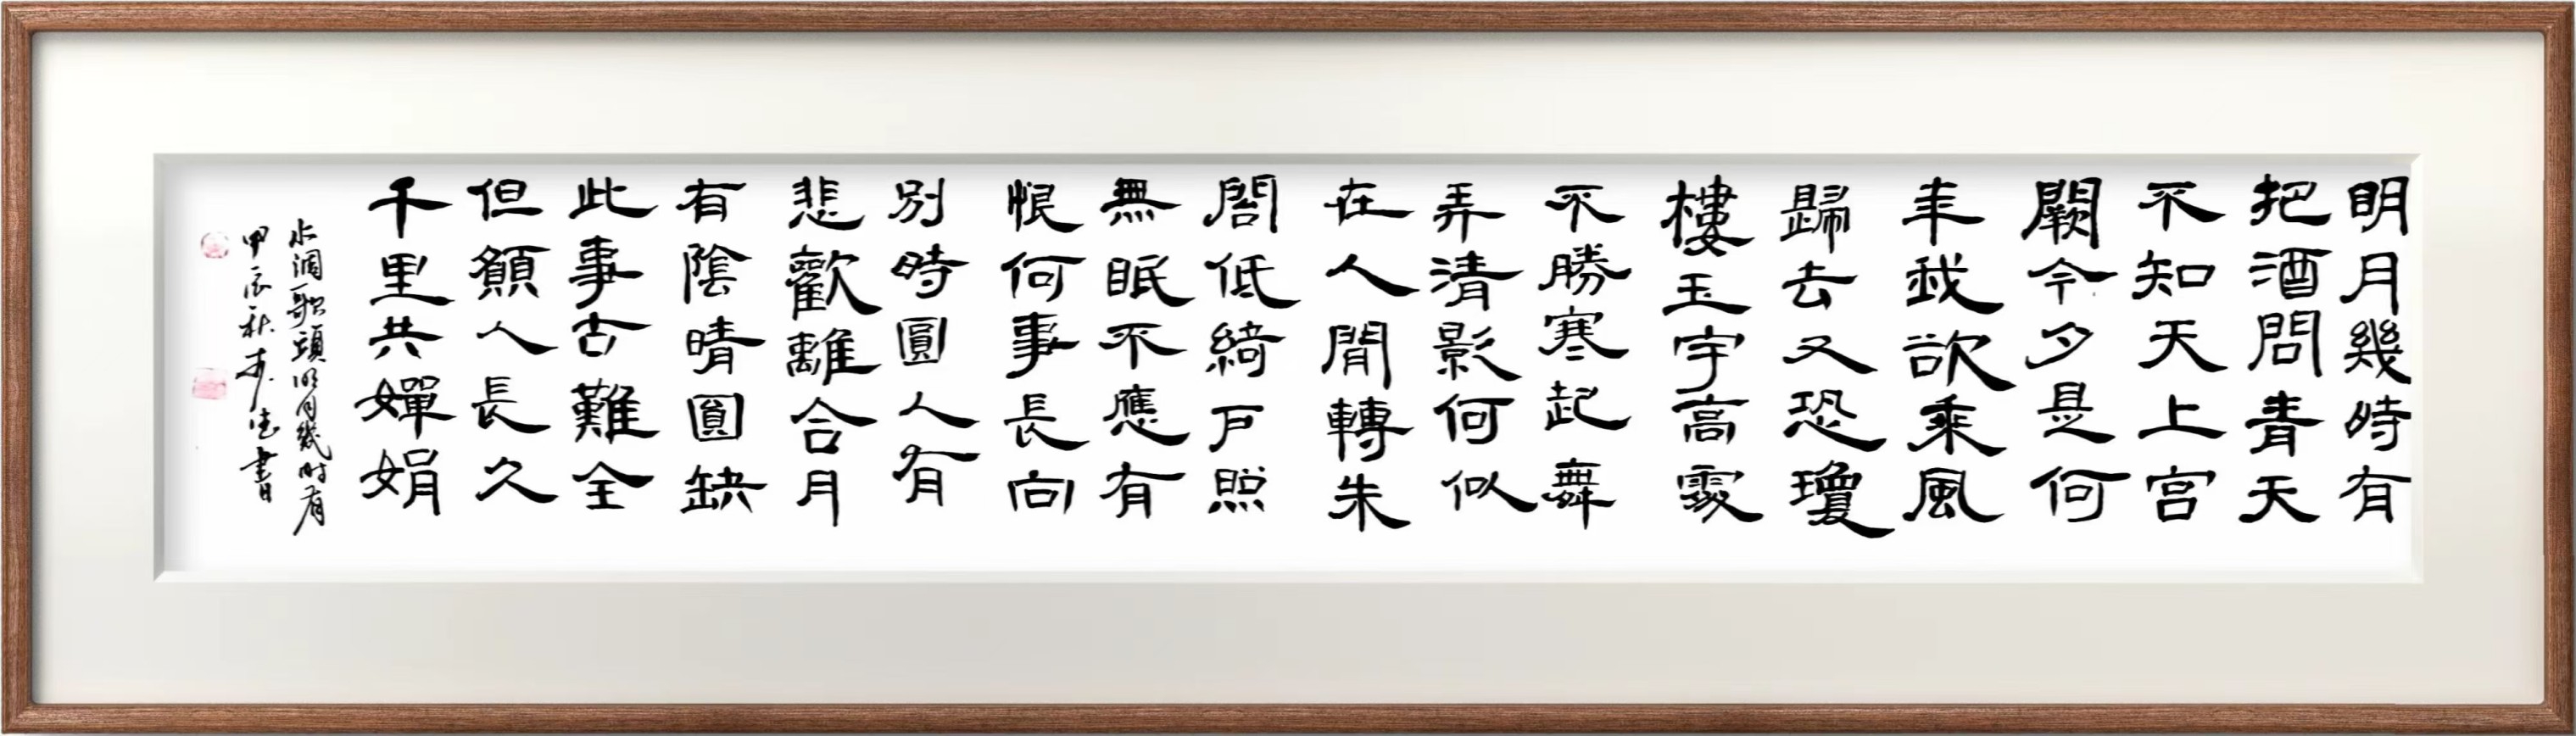 明月幾時有
把酒問青天
不知天上宫
闕今夕是何
年我欲乘風
歸去又恐瓊
樓玉宇高處
不勝寒起舞
弄清影何似
在人間轉朱
閣低綺户照
無眠不應有
恨何事長向
别時圓人有
悲歡離合月
有陰晴圓缺
此事古難全
但願人長久
千里共嬋娟
水調歌頭明月幾時有
甲辰秋書